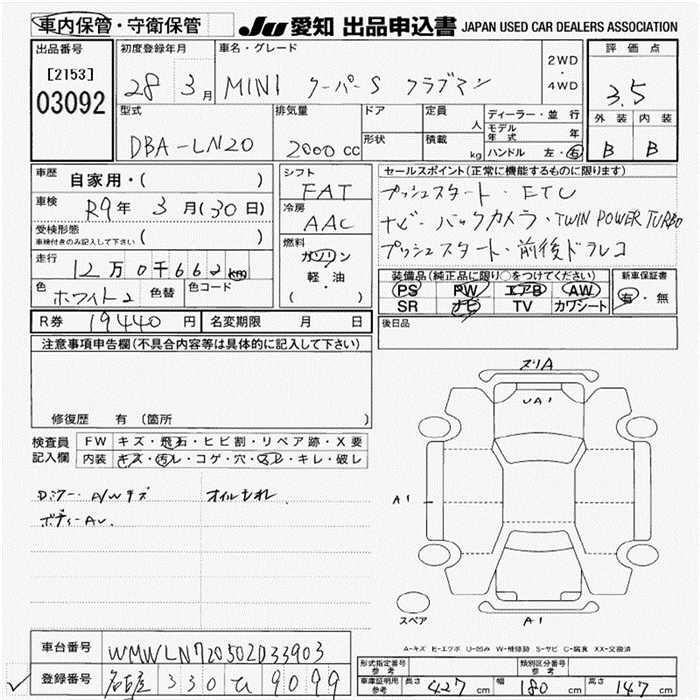 車内保管・守衛保管 JU 愛知 出品申込書 JAPAN USED CAR DEALERS ASSOCIATION
出品番号 初度登録年月 車名・グレード 2WD・4WD 評価点
[2153] 28 3月 MINI クーパーS クラブマン 3.5
03092
型式 排気量 ドア 定員 人 ディーラー・並行 外装 内装
DBA-LN20 2000cc 形状 積載 kg モデル年式 年 B B
ハンドル 左・右
車歴 自家用・( ) シフト FAT セールスポイント(正常に機能するものに限ります)
車検 R9年3月(30日) 冷房 AAC プッシュスタート・ETC
受検形態 車検付きのみ記入して下さい ( ) ナビ・バックカメラ・TWIN POWER TURBO
走行 12万0千662km 燃料 ガソリン 軽・油 ( ・ ) プッシュスタート・前後ドラレコ
色 ホワイト2 色替 色コード 装備品(純正品に限り○をつけてください) 新車保証書
PS PW エアB AW 有・無
SR ナビ TV カワシート
R券 19440円 名変期限 月 日 後日品
注意事項申告欄(不具合内容等は具体的に記入して下さい)
修復歴 有 (箇所
検査員 FW キズ・飛石・ヒビ割・リペア跡・X要
記入欄 内装 キズ・汚レ・コゲ・穴・スレ・キレ・破レ
Dミラー A/Wキズ オイルもれ
ボディーAU
スリA
UA1
A1
A1
スペア
A-キズ E-エクボ U-凹み W-補修跡 S-サビ C-腐食 XX-交換済
車台番号 WMWLN720502D33903
登録番号 名古屋 330 ひ 9099
形式指定番号 参考 類別区分番号 参考
車庫証明用 参考 長さ 427cm 幅 180cm 高さ 147cm